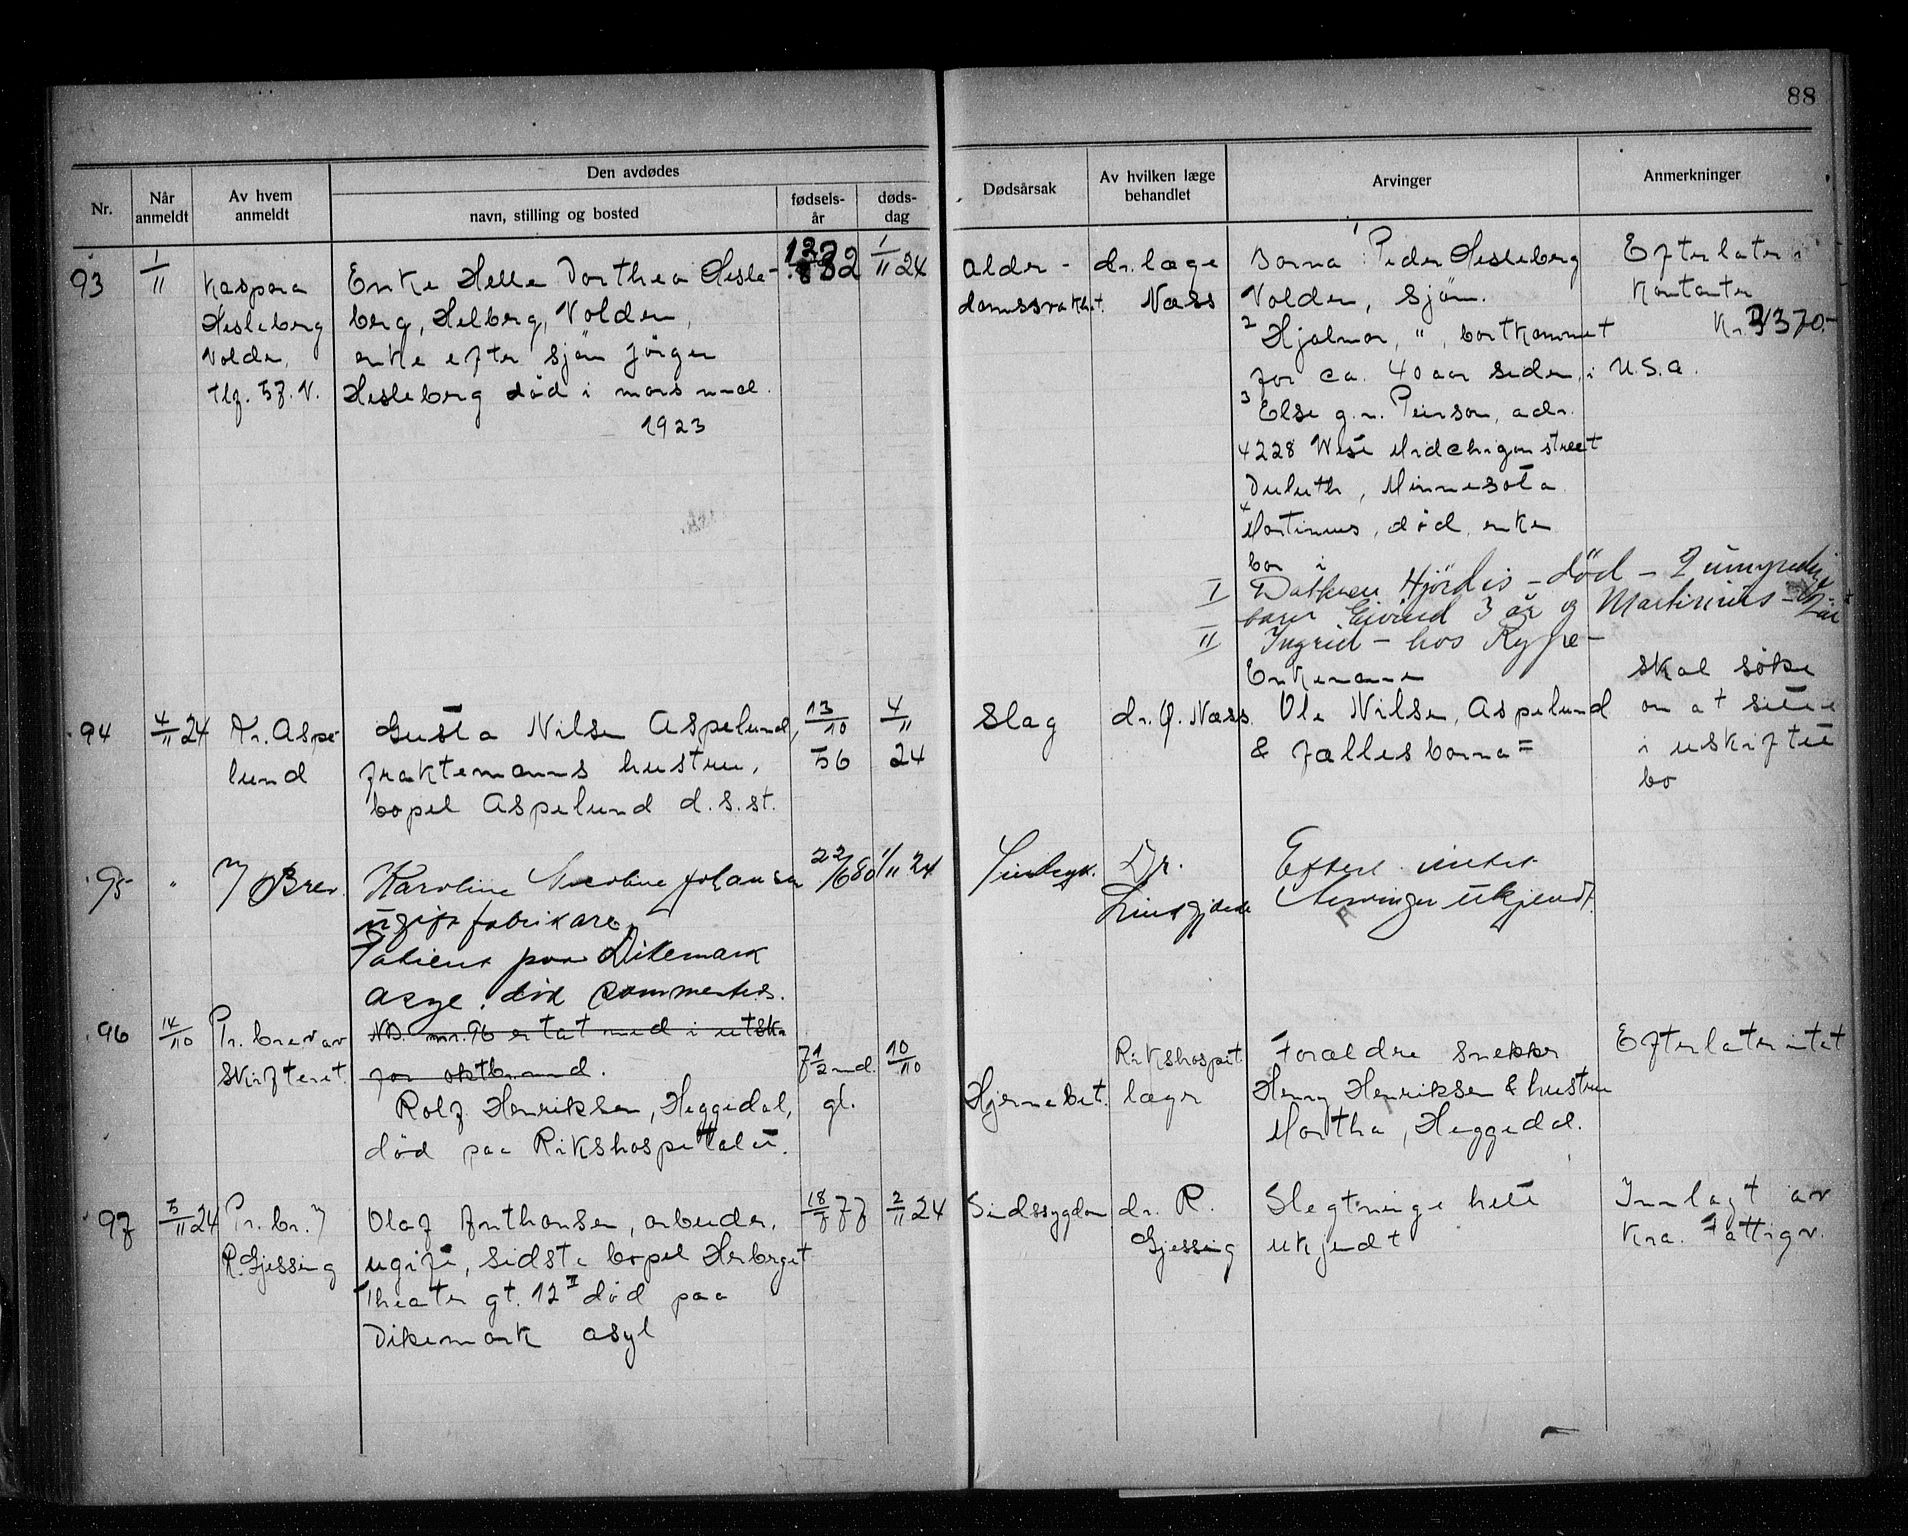 88
Nr.
Når anmeldt
Av hvem anmeldt
Den avdødes
navn, stilling og bosted
fødsels-år
døds-dag
Dødsårsak
Av hvilken læge behandlet
Arvinger
Anmerkninger
93
1/11
Kaspara
Hesleberg
Volden,
tlf. 57. V.
Enke Helle Dorthea Hesle-
berg, Helberg, Volden,
enke efter sjøm Jörgen
Hesleberg död i mars mnd.
1923
1/11 24
Alder-
domssvakhet.
dr. læge
Næss
Borna: 1 Peder Hesleberg
Volden, sjöm.
2 Hjalmar, ", bortkommet
for ca. 40 aar siden, i U.S.A.
3 Else g.m. Peirson, adr.
4228 West Midchigan street
Duluth, Minnesota
4 Martinius, död, enke
bor i
I Datteren Hjördis - död - 2 umyndig
barn Eivind 3 år og Martinius
II Ingrid - hos
Efterlater i
kontanter
Kr. 3370.-
94
4/11 24
Fr. Aspe-
lund
Gusta Nilsen Aspelund,
fraktemanns hustru,
bopel Aspelund d.s.st.
13/10
56
4/11
24
Slag
dr. O. Næss
Enkemann
Ole Nilsen, Aspelund
& fællesbarna =
skal söke
om at sitte
i uskiftet
bo
95
"
Brev
Karoline Nicoline Johansen
ugift fabrikarb.
Patient paa Dikemark
asyl. död sammesteds.
22/6 80
1/11 24
Sindsyk.
Dr.
Efterl. intet
Arvinger ukjendt.
96
14/10
Pr. brev av
skifteret.
NB. nr. 96 er tat med i utskr
for oktbr mnd.
Rolf Henriksen, Heggedal,
död paa Rikshospitalet.
7 1/2 md.
gl.
10/10
Hjernebet.
Rikshospit.
læge
Foræeldre snekker
Henry Henriksen & hustru
Martha, Heggedal.
Efterlater intet
97
5/11 24
Pr. br. f
R. Gjessing
Olaf Anthonsen, arbeider,
ugift, sidste bopel Herberget
Theater gt. 12 II död paa
Dikemark asyl
18/7 77
2/11 24
Sindssygdom
dr. R.
Gjessing
Slegtninge helt
ukjendt
Innlagt av
Kra. Fattigv.